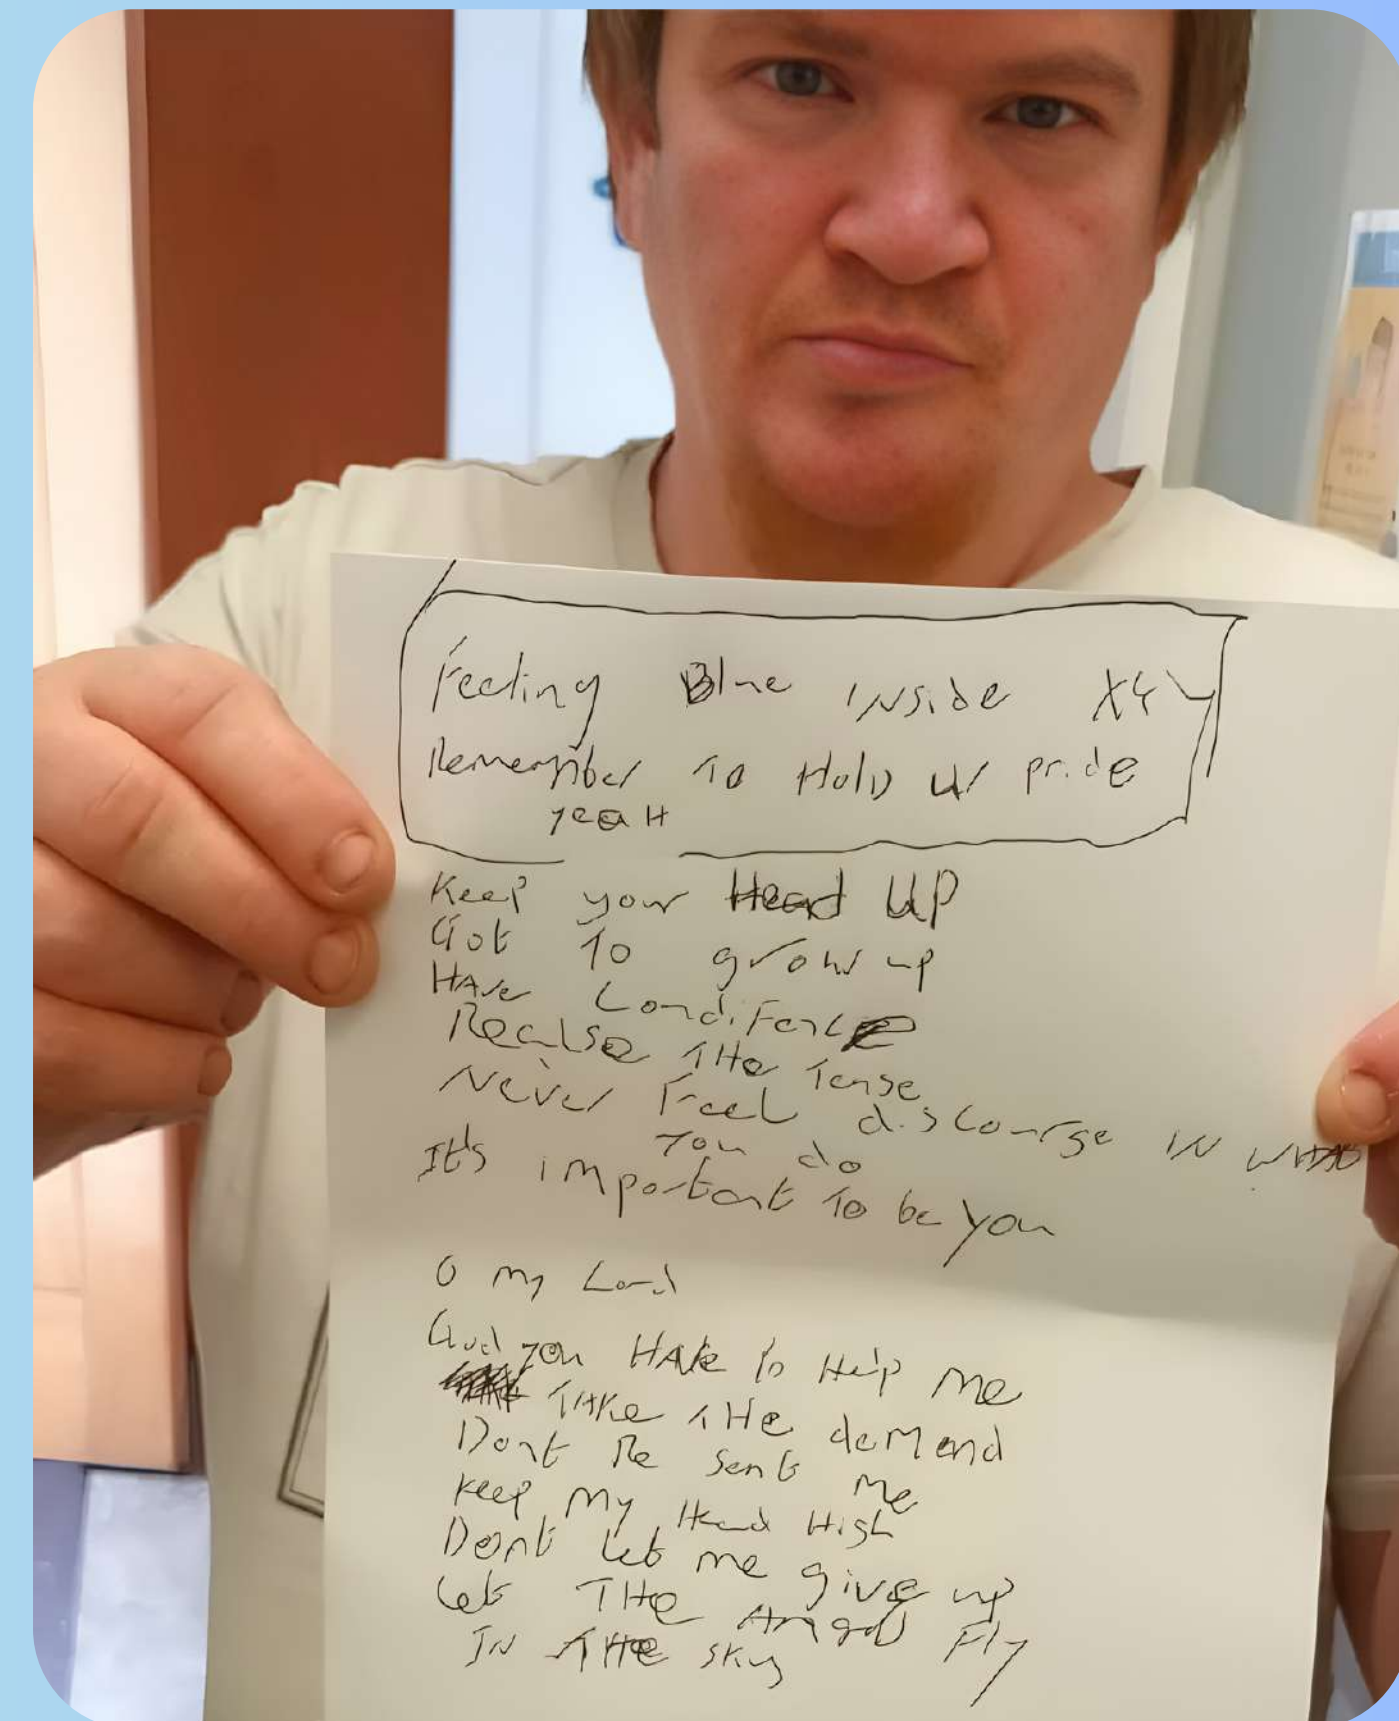 Feeling Blue inside X4
Remember To Hold ur pride
yeaH
Keep your Head UP
Got To grow up
HAve Condifence
Realse THe Tense
Never Feel discourge IN WHAt
You do
It's important To be you
O my Lord
God you HAve to Help me
TAke THe demand
Dont Re sent me
Keep My Head High
Dont let me give up
Let THe Angel Fly
IN THe sky